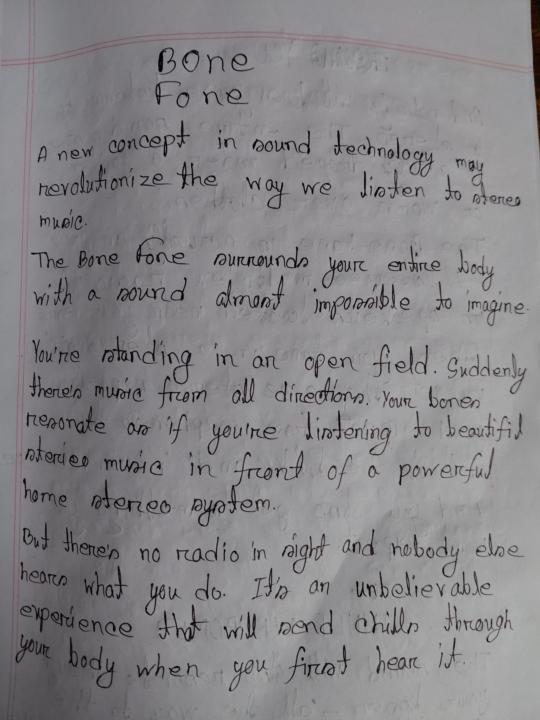 Bone
Fone
A new concept in sound technology may
revolutionize the way we listen to stereo
music.
The Bone Fone surrounds your entire body
with a sound almost impossible to imagine.
You're standing in an open field. Suddenly
there's music from all directions. Your bones
resonate as if you're listening to beautiful
stereo music in front of a powerful
home stereo system.
But there's no radio in sight and nobody else
hears what you do. It's an unbelievable
experience that will send chills through
your body when you first hear it.